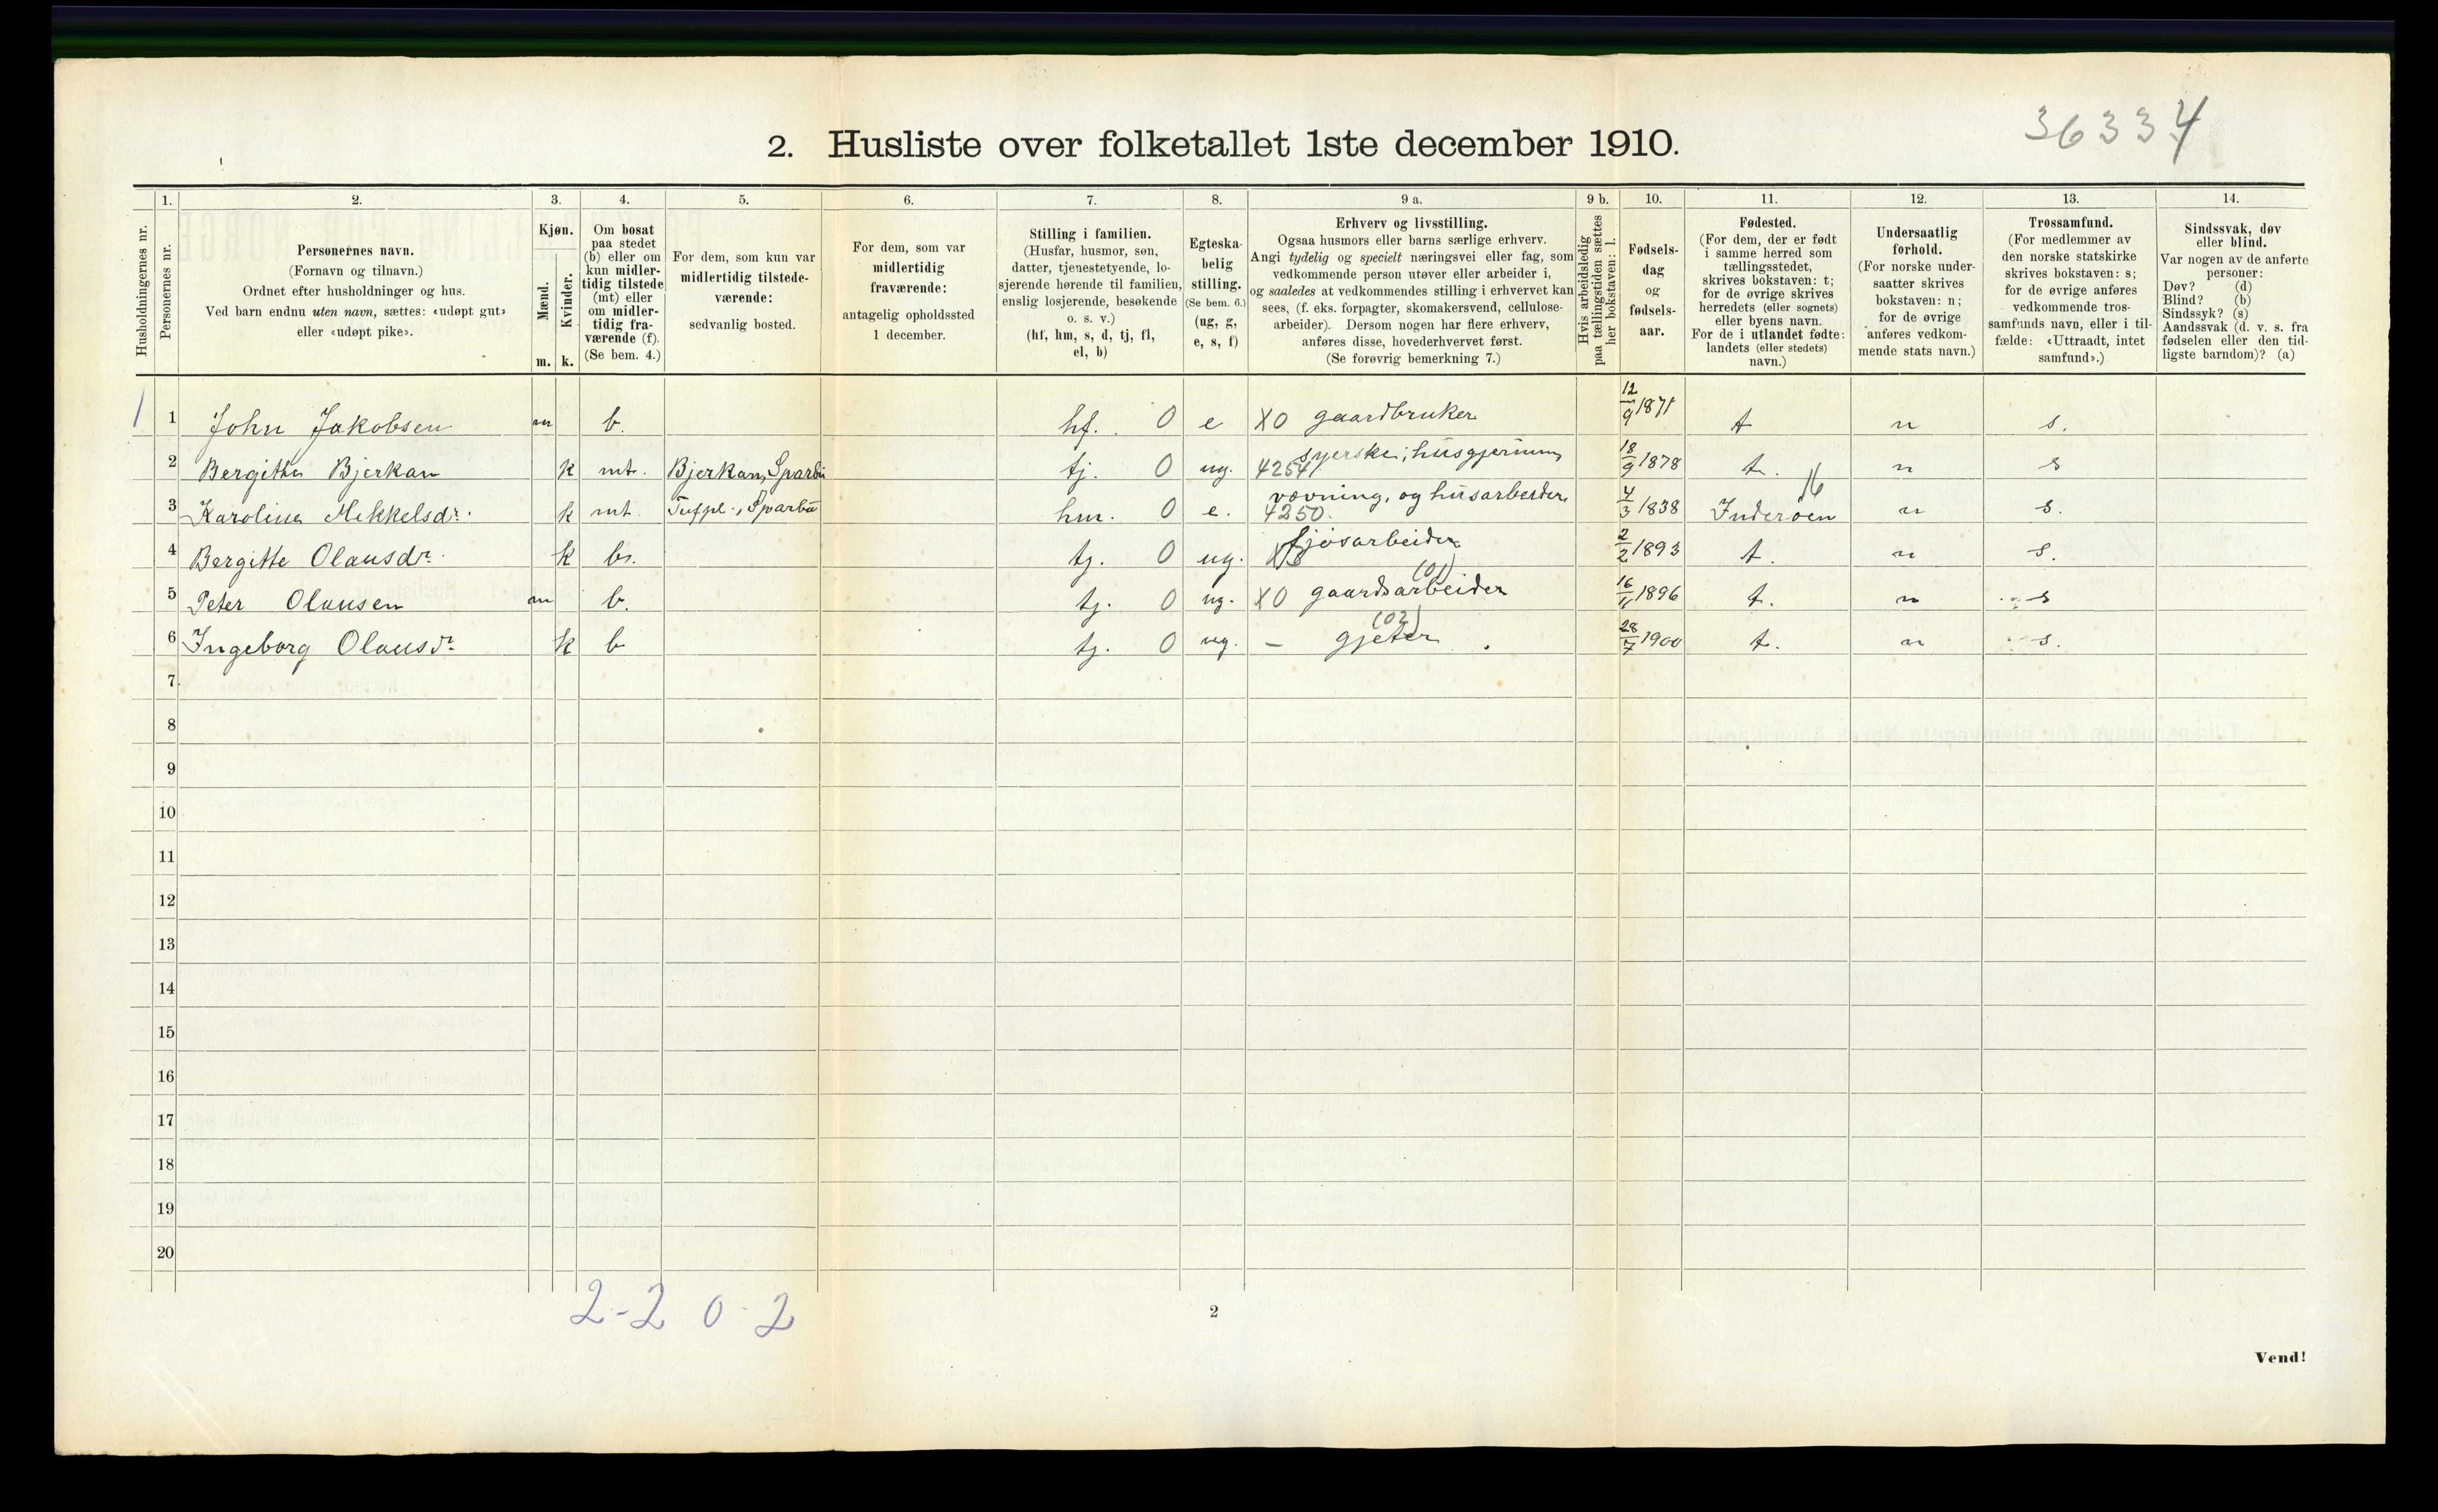 36334
2. Husliste over folketallet 1ste december 1910.
Husholdningernes nr.
1.
Personernes nr.
2.
Personernes navn.
(Fornavn og tilnavn.)
Ordnet efter husholdninger og hus.
Ved barn endnu uten navn, sættes: «udøpt gut»
eller «udøpt pike».
3.
Kjøn.
Mænd.
Kvinder.
m. k.
4.
Om bosat
paa stedet
(b) eller om
kun midler-
tidig tilstede
(mt) eller
om midler-
tidig fra-
værende (f).
(Se bem. 4.)
5.
For dem, som kun var
midlertidig tilstede-
værende:
sedvanlig bosted.
6.
For dem, som var
midlertidig
fraværende:
antagelig opholdssted
1 december.
7.
Stilling i familien.
(Husfar, husmor, søn,
datter, tjenestetyende, lo-
sjerende hørende til familien,
enslig losjerende, besøkende
o. s. v.)
(hf, hm, s, d, tj, fl,
el, b)
8.
Egteska-
belig
stilling.
(Se bem. 6.)
(ug, g,
e, s, f)
9 a.
Erhverv og livsstilling.
Ogsaa husmors eller barns særlige erhverv.
Angi tydelig og specielt næringsvei eller fag, som
vedkommende person utøver eller arbeider i,
og saaledes at vedkommendes stilling i erhvervet kan
sees, (f. eks. forpagter, skomakersvend, cellulose-
arbeider). Dersom nogen har flere erhverv,
anføres disse, hovederhvervet først.
(Se forøvrig bemerkning 7.)
9 b.
Hvis arbeidsledig
paa tællingstiden sættes
her bokstaven: l.
10.
Fødsels-
dag
og
fødsels-
aar.
11.
Fødested.
(For dem, der er født
i samme herred som
tællingsstedet,
skrives bokstaven: t;
for de øvrige skrives
herredets (eller sognets)
eller byens navn.
For de i utlandet fødte:
landets (eller stedets)
navn.)
12.
Undersaatlig
forhold.
(For norske under-
saatter skrives
bokstaven: n;
for de øvrige
anføres vedkom-
mende stats navn.)
13.
Trossamfund.
(For medlemmer av
den norske statskirke
skrives bokstaven: s;
for de øvrige anføres
vedkommende tros-
samfunds navn, eller i til-
fælde: «Uttraadt, intet
samfund».)
14.
Sindssvak, døv
eller blind.
Var nogen av de anførte
personer:
Døv? (d)
Blind? (b)
Sindssyk? (s)
Aandssvak (d. v. s. fra
fødselen eller den tid-
ligste barndom)? (a)
1 1 John Jakobsen m b. hf. 0 e X0 gaardbruker 12/9 1871 t n s.
2 Bergitha Bjerkan k mt. Bjerkan, Sparbu tj. 0 ug. 4254 syerske; husgjerning 18/9 1878 t. n s
3 Karolina Mekkelsdr. k mt. Tufpl., Sparbu hm. 0 e. 4250. vævning, og husarbeider 4/3 1838 Inderøen 16 n s.
4 Bergitte Olausdr. k b. tj. 0 ug. fjøsarbeider 2/2 1893 t. n s.
5 Peter Olausen m b. tj. 0 ug. X0 gaardsarbeider (01) 16/11 1896 t. n s
6 Ingeborg Olausdr k b tj. 0 ug. – gjeter (02) 28/7 1900 t. n s.
7
8
9
10
11
12
13
14
15
16
17
18
19
20
2-2 0-2
2
Vend!